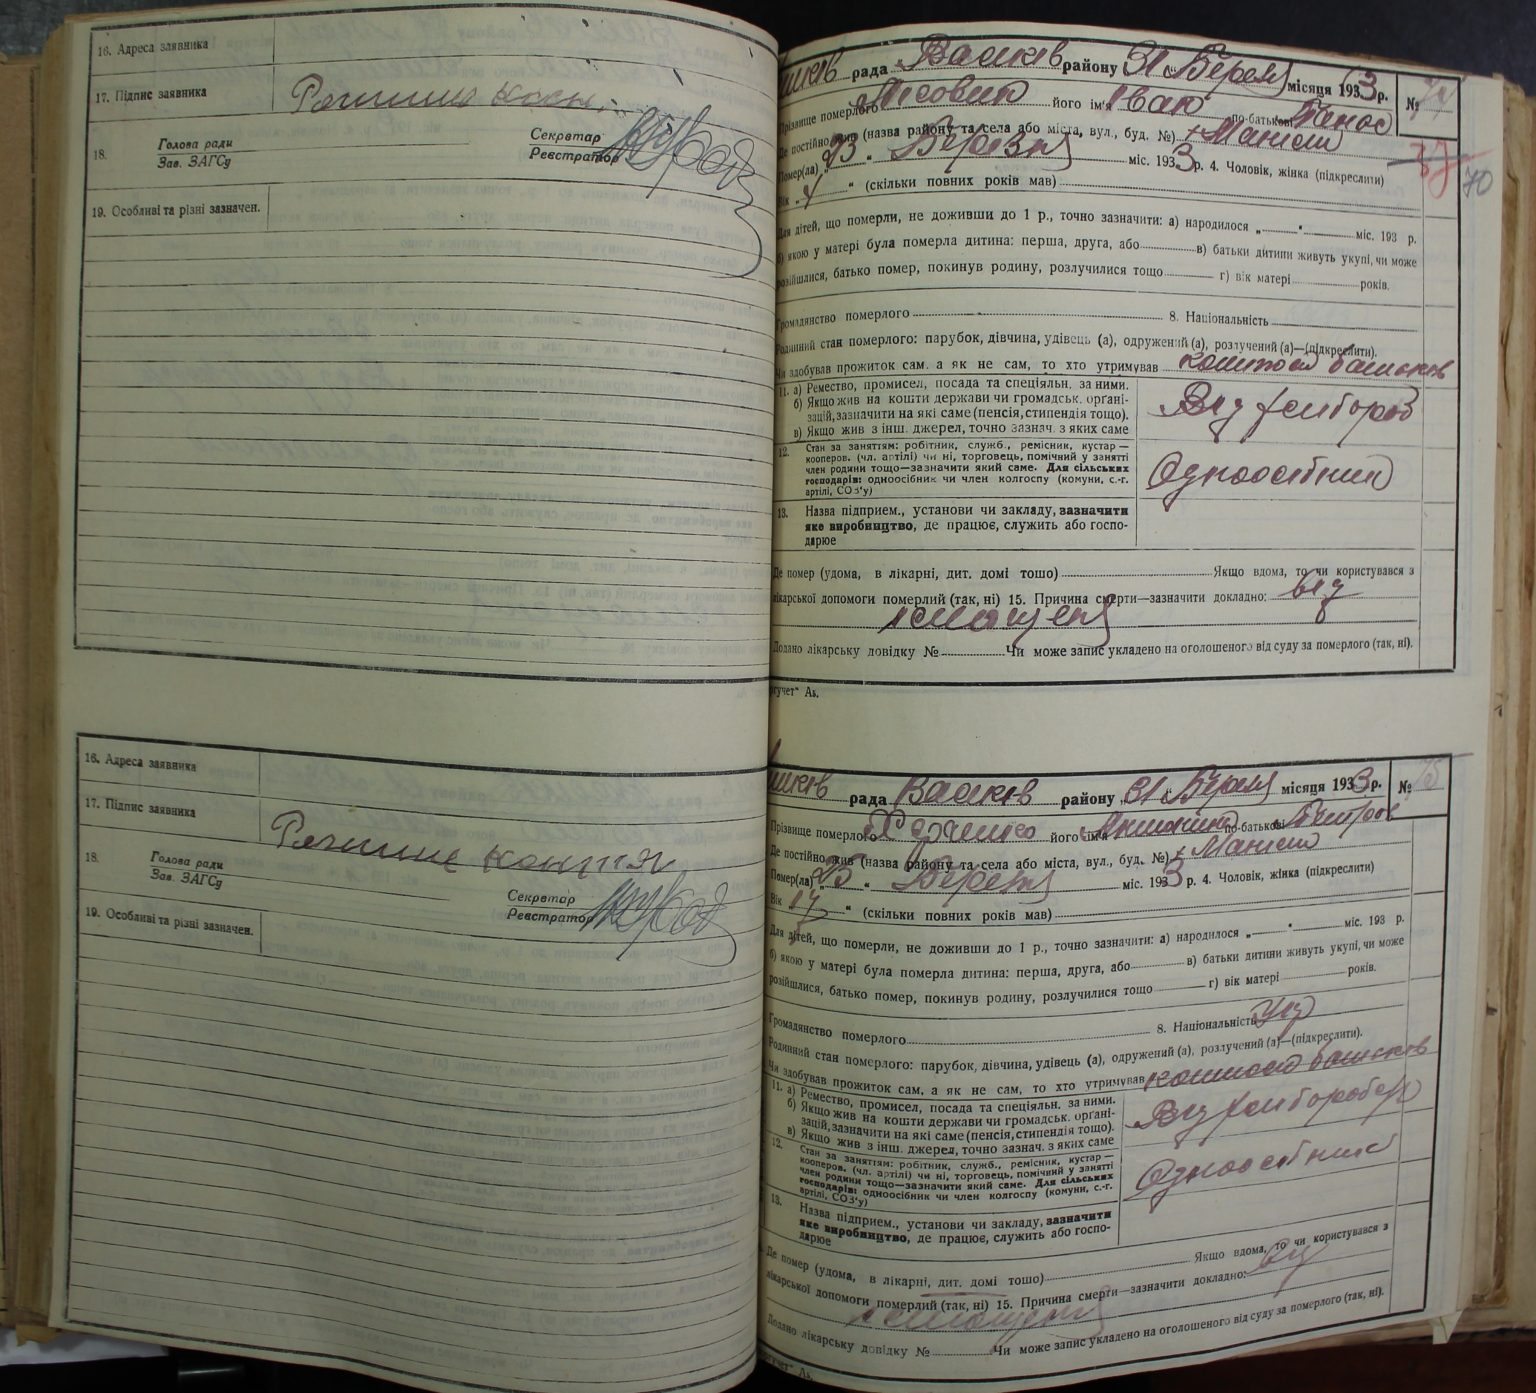 16. Адреса заявника
17. Підпис заявника
18. Голова ради
Зав. ЗАГСу
Секретар
Реєстратор
19. Особливі та різні зазначен.
рада Васлків району 31 Березня місяця 1933 р. №
Прізвище померлого Лісовик його ім'я Іван по-батькові Панас
Де постійно жив (назва району та села або міста, вул., буд. №)
Помер(ла) „23“ Березня міс. 1933 р. 4. Чоловік, жінка (підкреслити)
37 70
Вік „ “ (скільки повних років мав)
Для дітей, що померли, не доживши до 1 р., точно зазначити: а) народилося „ “ міс. 193 р.
б) якою у матері була померла дитина: перша, друга, або в) батьки дитини живуть укупі, чи може
розійшлися, батько помер, покинув родину, розлучилися тощо г) вік матері років.
Громадянство померлого 8. Національність
Родинний стан померлого: парубок, дівчина, удівець (а), одружений (а), розлучений (а)—(підкреслити).
Чи здобував прожиток сам, а як не сам, то хто утримував коштом батьків
11. а) Ремество, промисел, посада та спеціяльн. за ними.
б) Якщо жив на кошти держави чи громадськ. органі-
зацій, зазначити на які саме (пенсія, стипендія тощо).
в) Якщо жив з інш. джерел, точно зазнач. з яких саме
Від
12. Стан за заняттям: робітник, служб., ремісник, кустар —
кооперов. (чл. артілі) чи ні, торговець, помічний у занятті
член родини тощо—зазначити який саме. Для сільських
господарів: одноосібник чи член колгоспу (комуни, с.-г.
артілі, СОЗ'у)
Одноосібник
13. Назва підприєм., установи чи закладу, зазначити
яке виробництво, де працює, служить або госпо-
дарює
Де помер (удома, в лікарні, дит. домі тошо) Якщо вдома, то чи користувався з
лікарської допомоги померлий (так, ні) 15. Причина смерти—зазначити докладно: від
істощення
Додано лікарську довідку № Чи може запис укладено на оголошеного від суду за померлого (так, ні).
16. Адреса заявника
17. Підпис заявника
18. Голова ради
Зав. ЗАГСу
Секретар
Реєстратор
19. Особливі та різні зазначен.
рада Васлків району 31 Березня місяця 1933 р. № 75
Прізвище померлого його ім'я по-батькові Дмитров
Де постійно жив (назва району та села або міста, вул., буд. №)
Помер(ла) „25“ Березня міс. 1933 р. 4. Чоловік, жінка (підкреслити)
Вік „17“ (скільки повних років мав)
Для дітей, що померли, не доживши до 1 р., точно зазначити: а) народилося „ “ міс. 193 р.
б) якою у матері була померла дитина: перша, друга, або в) батьки дитини живуть укупі, чи може
розійшлися, батько помер, покинув родину, розлучилися тощо г) вік матері років.
Громадянство померлого 8. Національність Укр
Родинний стан померлого: парубок, дівчина, удівець (а), одружений (а), розлучений (а)—(підкреслити).
Чи здобував прожиток сам, а як не сам, то хто утримував коштом батьків
11. а) Ремество, промисел, посада та спеціяльн. за ними.
б) Якщо жив на кошти держави чи громадськ. органі-
зацій, зазначити на які саме (пенсія, стипендія тощо).
в) Якщо жив з інш. джерел, точно зазнач. з яких саме
Від
12. Стан за заняттям: робітник, служб., ремісник, кустар —
кооперов. (чл. артілі) чи ні, торговець, помічний у занятті
член родини тощо—зазначити який саме. Для сільських
господарів: одноосібник чи член колгоспу (комуни, с.-г.
артілі, СОЗ'у)
Одноосібник
13. Назва підприєм., установи чи закладу, зазначити
яке виробництво, де працює, служить або госпо-
дарює
Де помер (удома, в лікарні, дит. домі тошо) Якщо вдома, то чи користувався з
лікарської допомоги померлий (так, ні) 15. Причина смерти—зазначити докладно: від
істощення
Додано лікарську довідку № Чи може запис укладено на оголошеного від суду за померлого (так, ні).